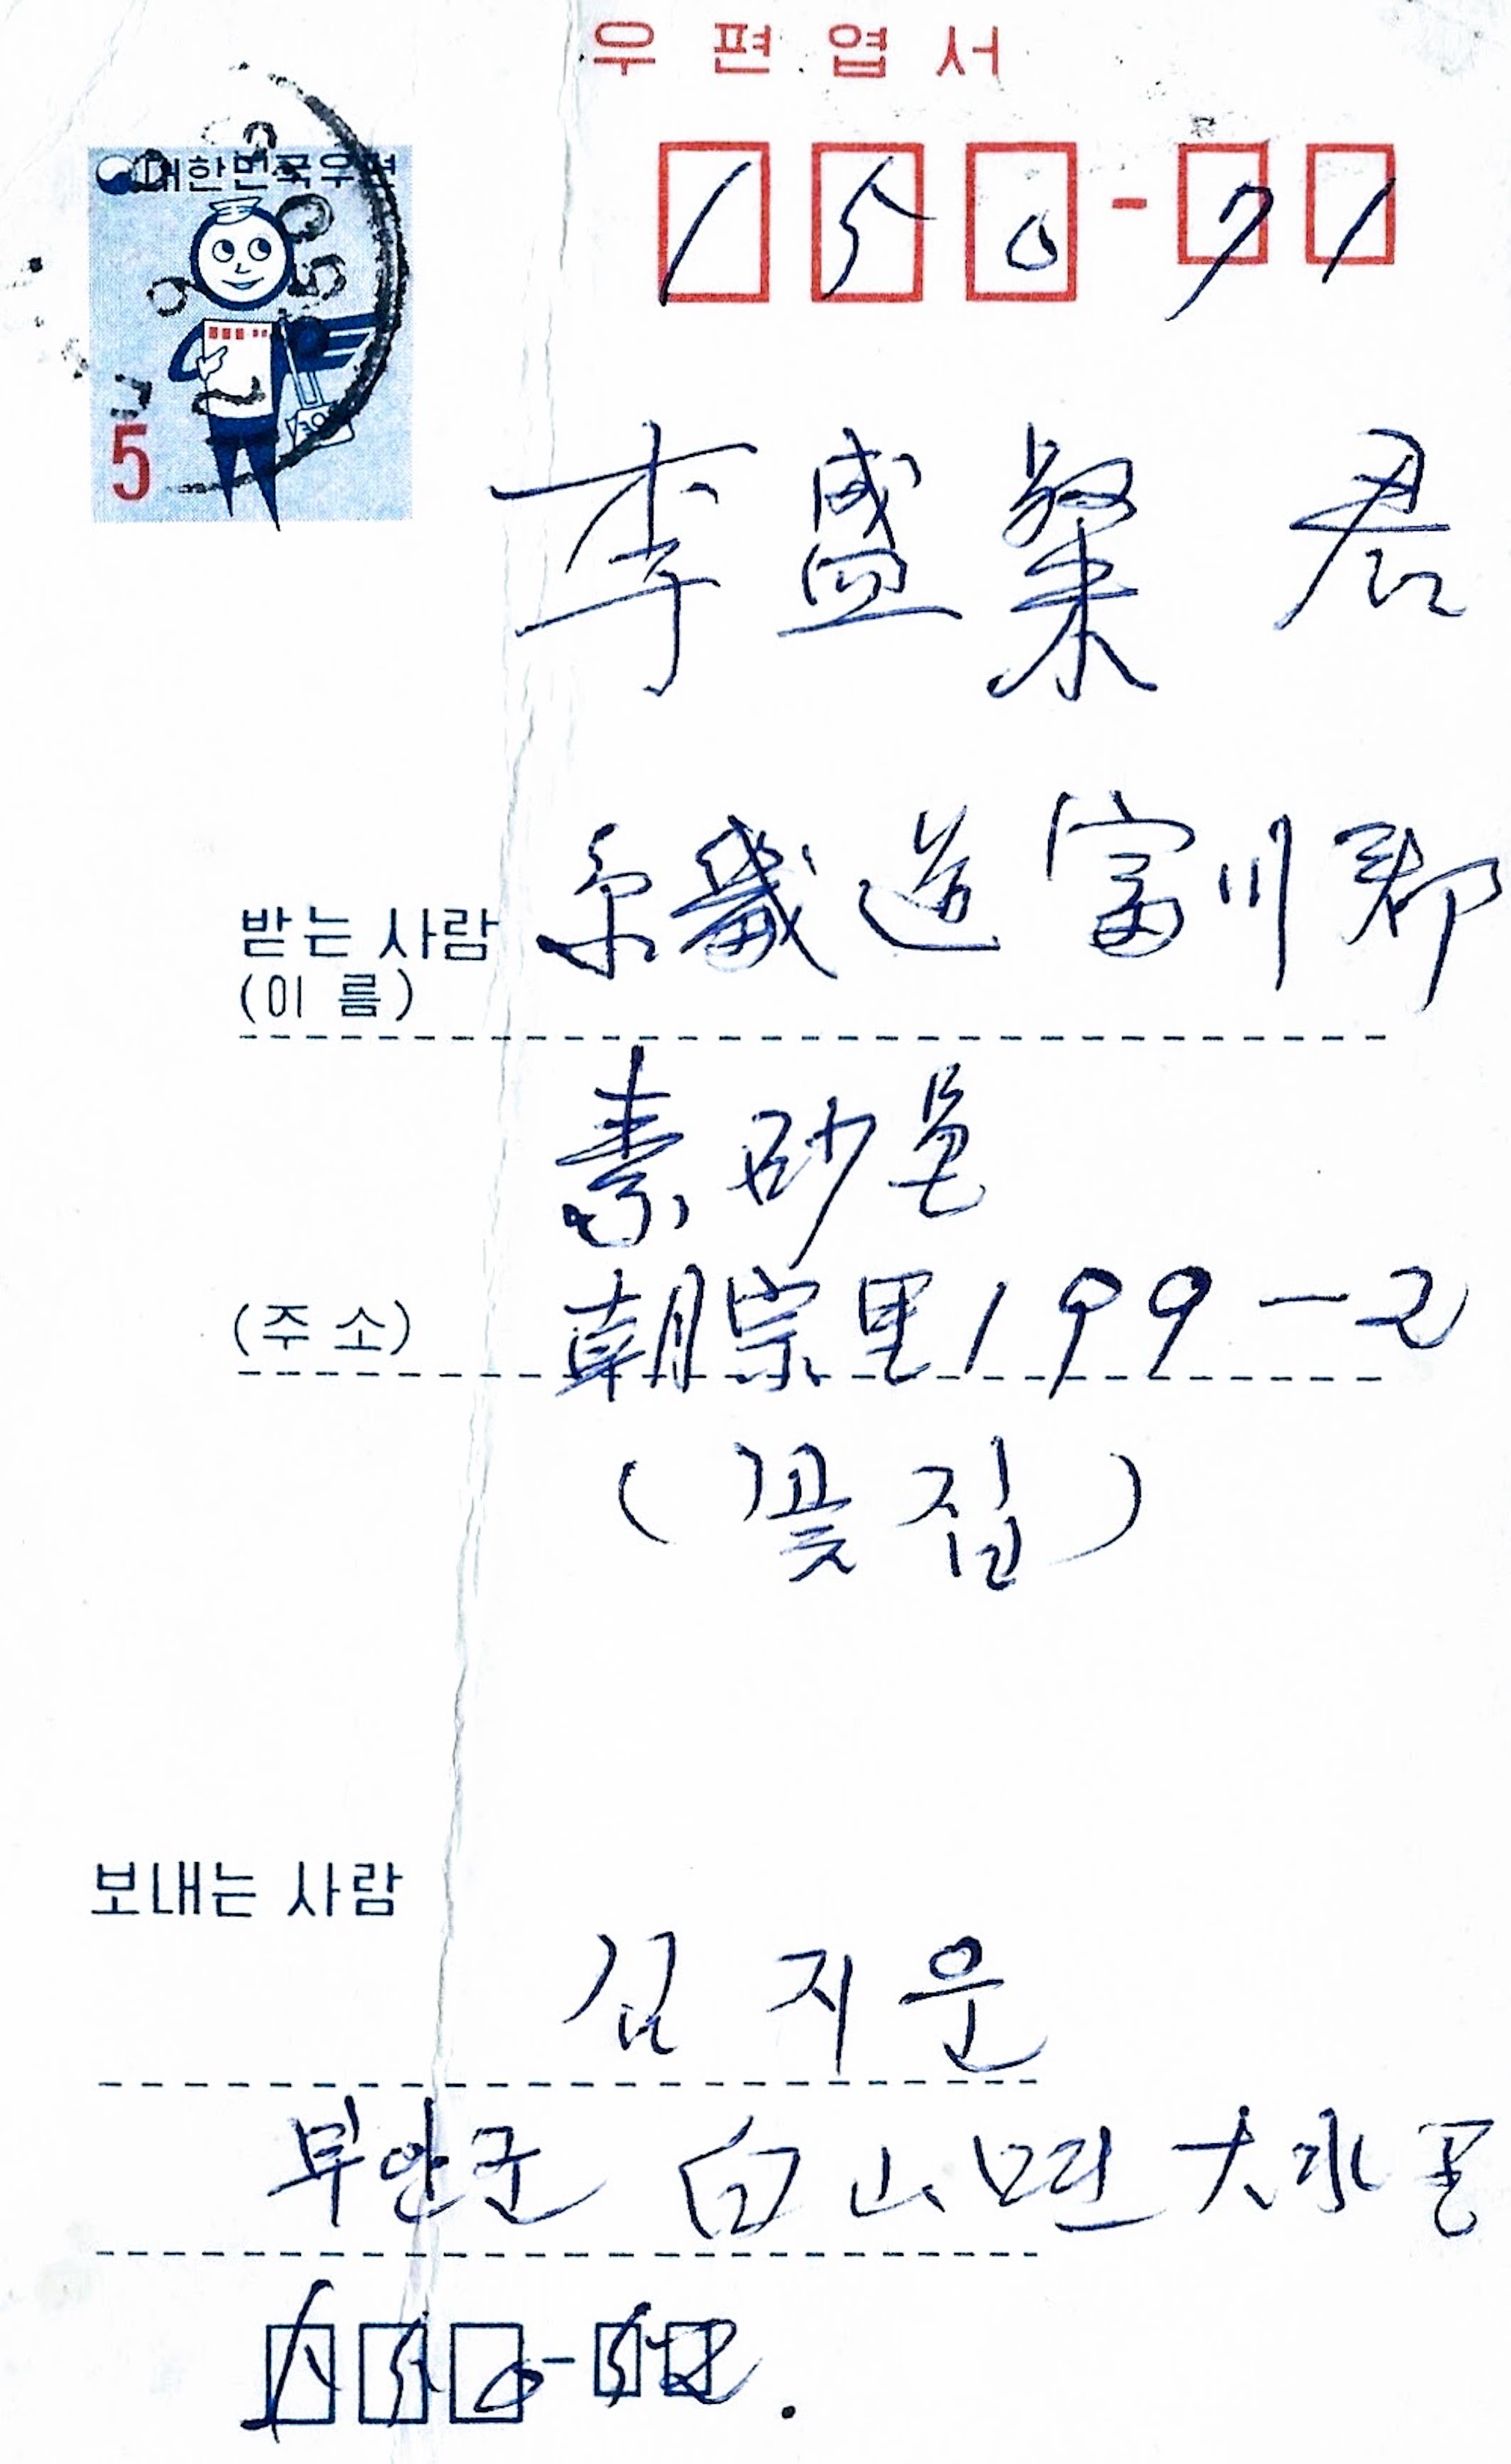 우편엽서
대한민국우편
5
150-71
李盛粲 君
京畿道 富川郡
받는 사람
(이 름)
素砂邑
(주 소)
朝宗里 199-2
(꽃집)
보내는 사람
김지운
부안군 白山면 大水里